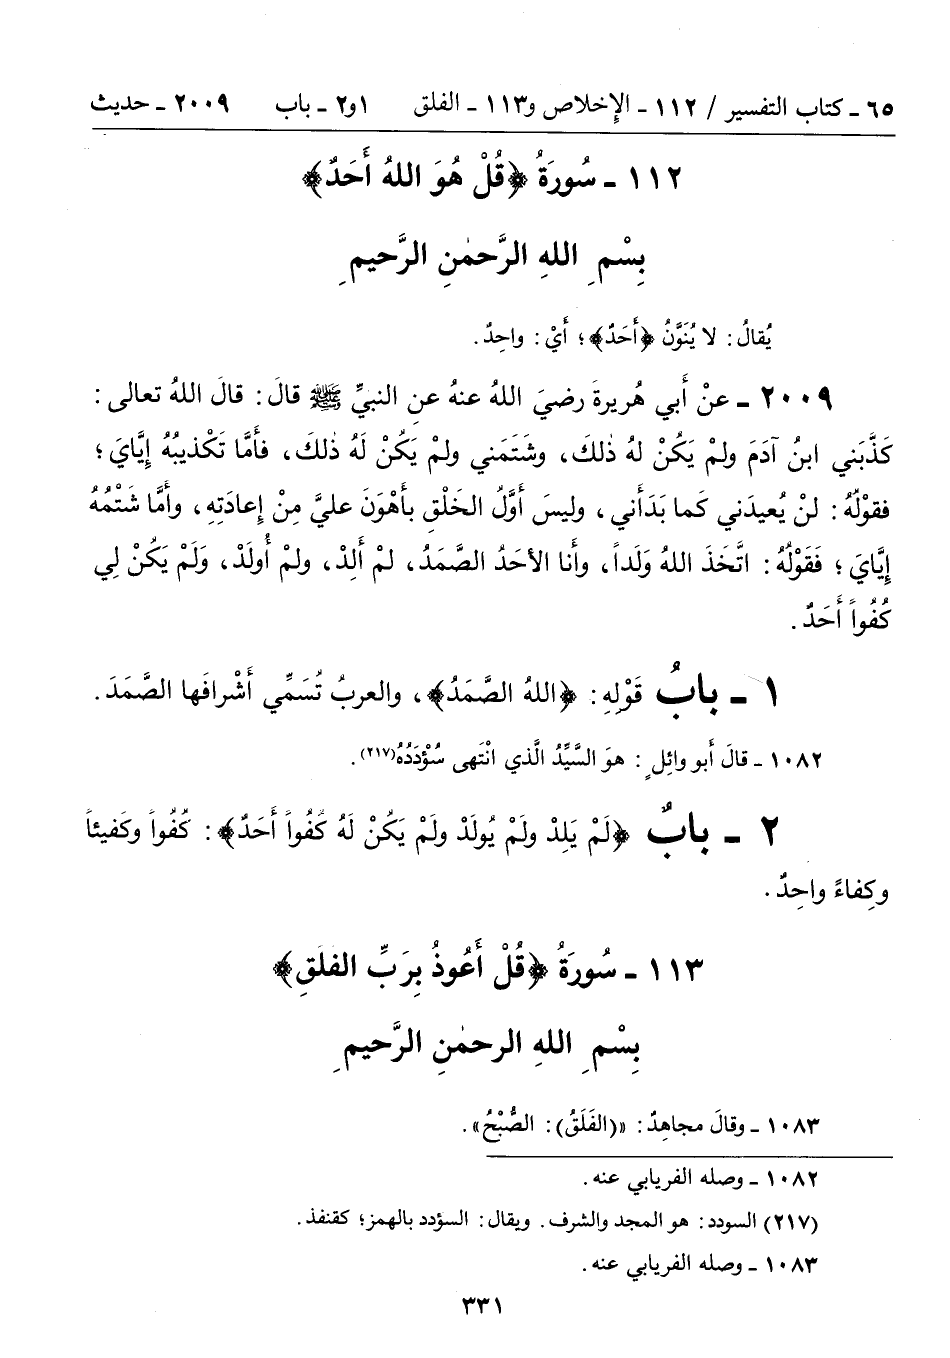 ٦٥ ـ كتاب التفسير / ١١٢ - الإخلاص و١١٣ - الفلق ١و٢ - باب ٢٠٠٩ - حديث
١١٢ - سُورَةُ ﴿قُلْ هُوَ اللهُ أَحَدٌ﴾
بِسْمِ اللهِ الرَّحمٰنِ الرَّحيمِ
يُقالُ: لا يُنَوَّنُ ﴿أَحَدٌ﴾؛ أيْ: واحِدٌ.
٢٠٠٩ ـ عنْ أَبي هُريرةَ رضيَ اللهُ عنهُ عنِ النبيِّ ﷺ قالَ: قالَ اللهُ تعالى:
كَذَّبَني ابنُ آدَمَ ولمْ يَكُنْ لهُ ذٰلكَ، وشَتَمَني ولمْ يَكُنْ لَهُ ذٰلكَ، فأمَّا تَكْذيبُهُ إِيَّايَ؛
فقوْلُهُ: لنْ يُعيدَني كَما بَدَأَني، وليسَ أوَّلُ الخَلْقِ بأَهْوَنَ عليَّ مِنْ إِعادَتِهِ، وأَمَّا شَتْمُهُ
إِيَّايَ؛ فَقَوْلُهُ: اتَّخَذَ اللهُ وَلَداً، وأَنا الأحَدُ الصَّمَدُ، لمْ أَلِدْ، ولمْ أُولَدْ، وَلَمْ يَكُنْ لِي
كُفُواً أَحَدٌ.
١ ـ بابُ قَوْلِهِ: ﴿اللهُ الصَّمَدُ﴾، والعربُ تُسَمِّي أَشْرافَها الصَّمَدَ.
١٠٨٢ ـ قالَ أَبو وائِلٍ: هوَ السَّيِّدُ الَّذي انْتَهى سُؤْدَدُهُ(٢١٧).
٢ ـ بابٌ ﴿لَمْ يَلِدْ ولَمْ يُولَدْ ولَمْ يَكُنْ لَهُ كُفُواً أَحَدٌ﴾: كُفُواً وكَفيئاً
وكِفاءً واحِدٌ.
١١٣ - سُورَةُ ﴿قُلْ أَعُوذُ بِرَبِّ الفَلَقِ﴾
بِسْمِ اللهِ الرحمٰنِ الرَّحيمِ
١٠٨٣ ـ وقالَ مجاهِدٌ: «(الفَلَقُ): الصُّبْحُ».
١٠٨٢ ـ وصله الفريابي عنه.
(٢١٧) السودد: هو المجد والشرف. ويقال: السؤدد بالهمز؛ كقنفذ.
١٠٨٣ ـ وصله الفريابي عنه.
٣٣١